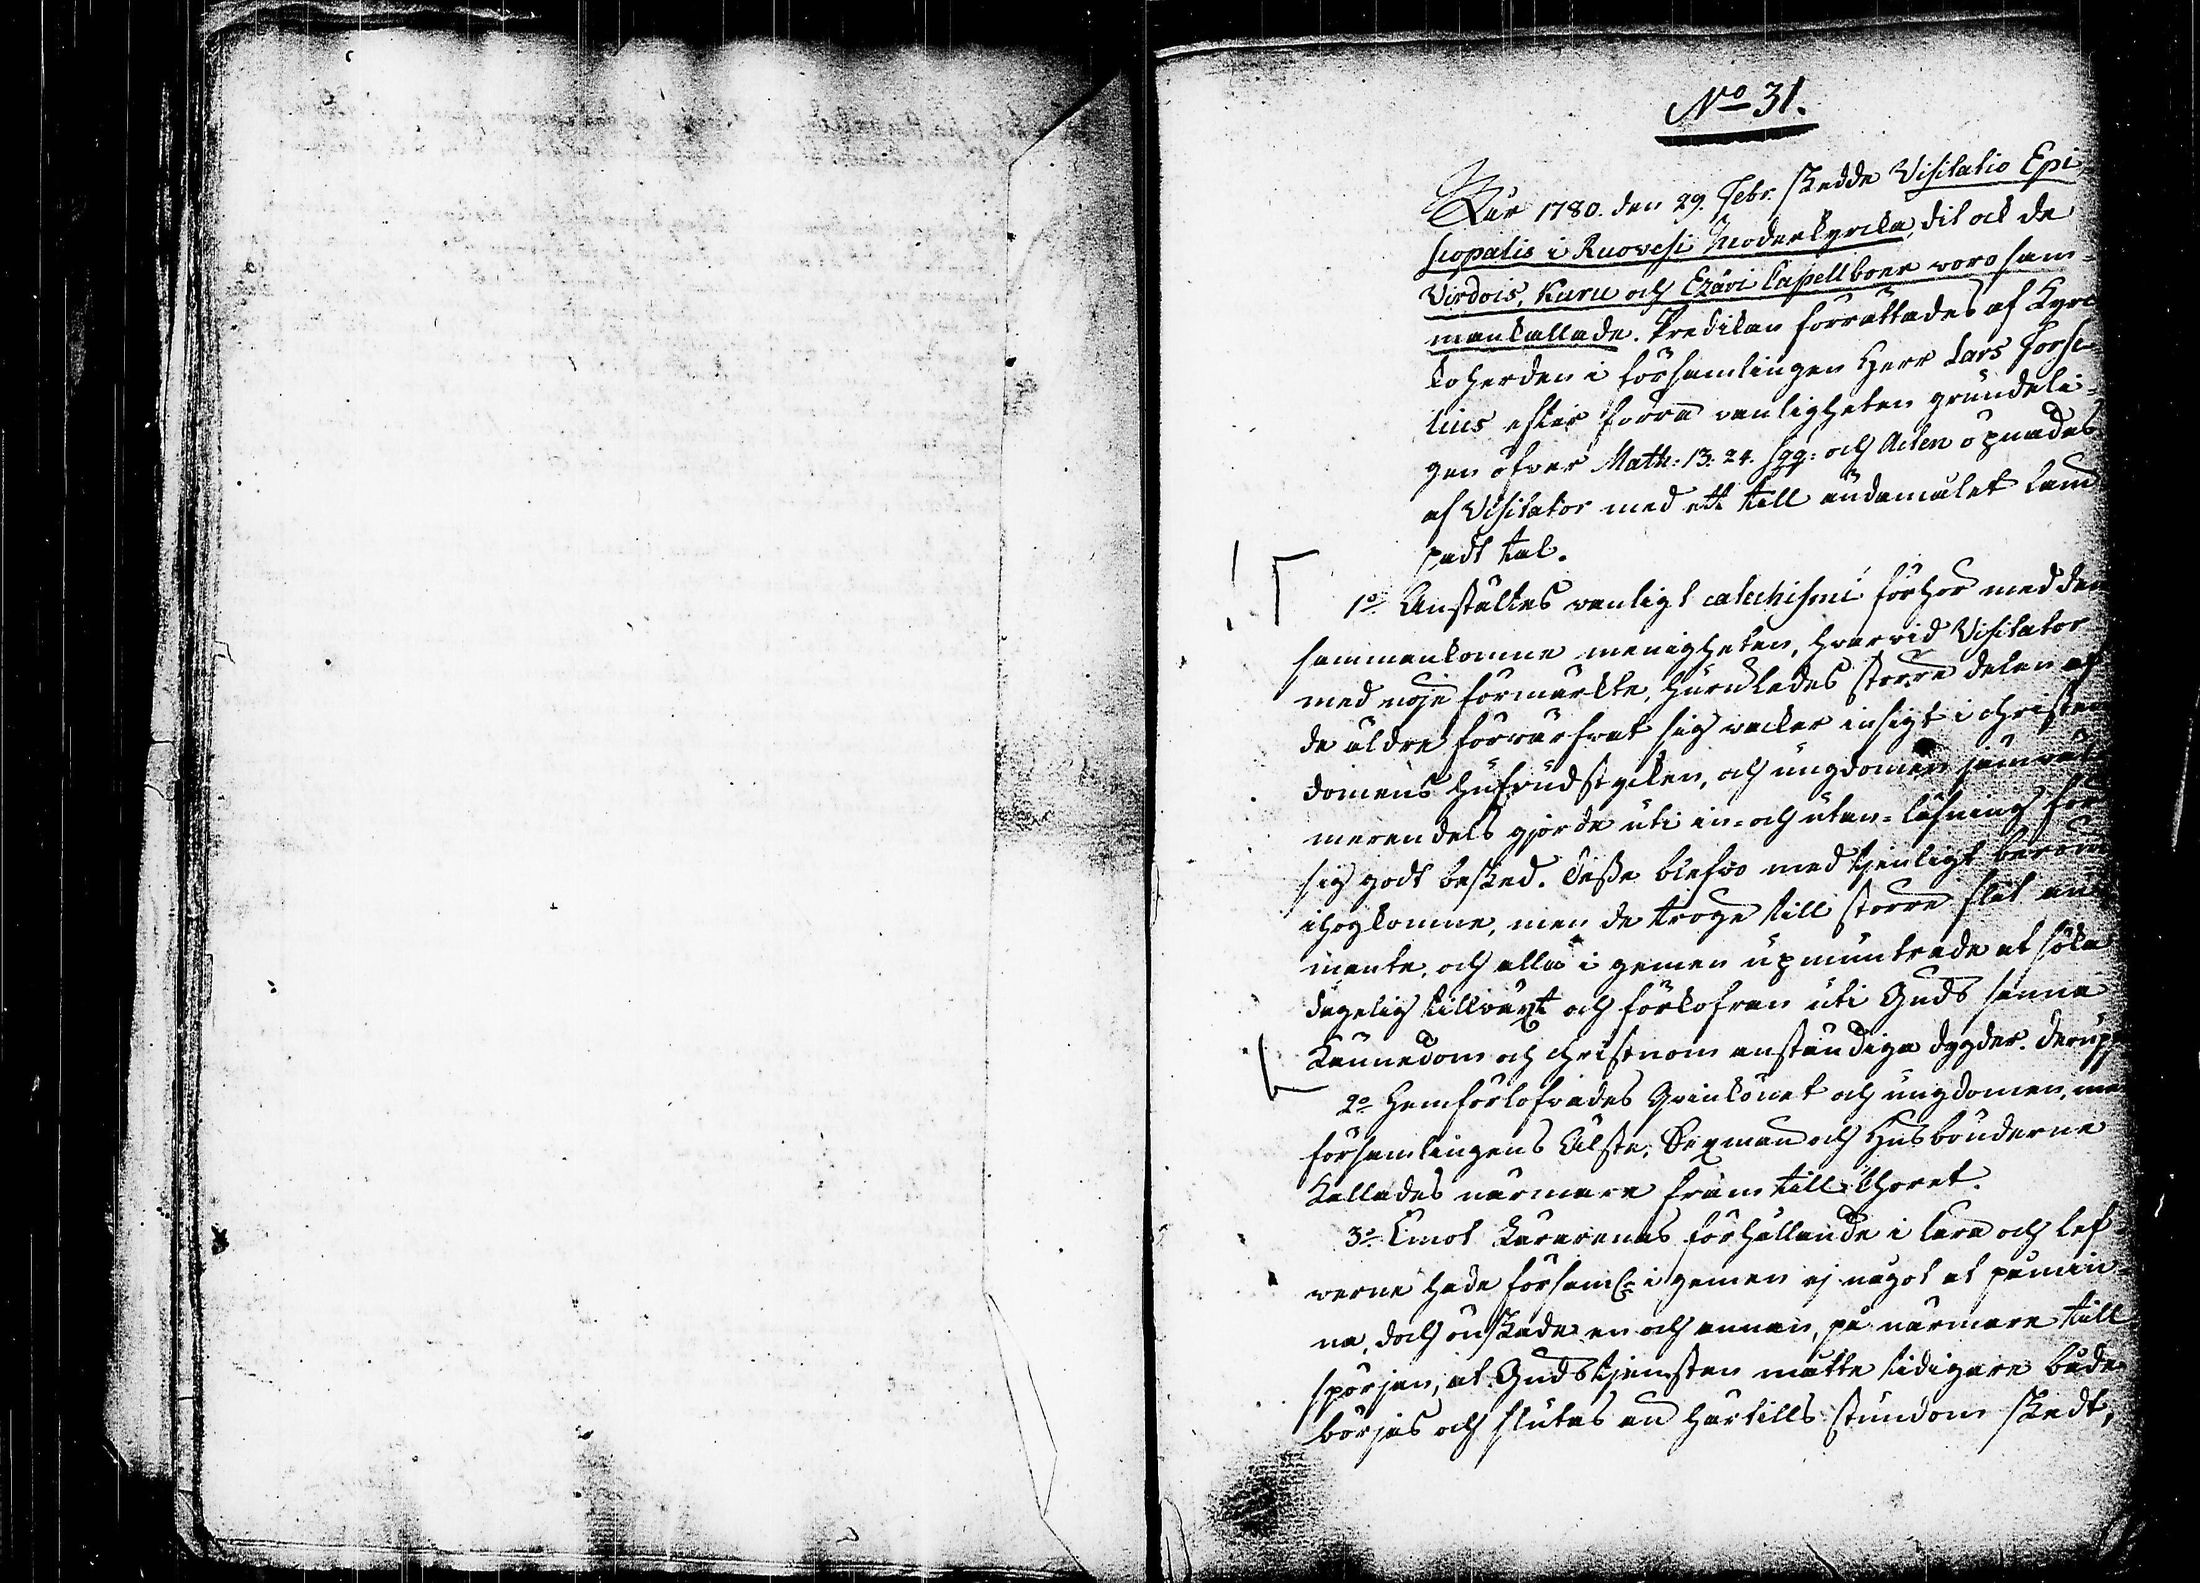 No 31.
Åhr 1780. den 29. Febr. skedde Visitatio Epi-
scopalis i Ruovesi Moderkyrcka, dit ock de
Virdois, Kuru och Ezäri Capellboer woro sam-
mankallade. Predikan förrättades af Kyrc
koherden i församlingen Herr Lars Forse-
lius efter förra vanligheten grundeli-
gen öfver Math: 13: 24. sqq: och Acten öpnades
af Visitator med ett till ändamålet läm
padt tal.
1o Anstältes vanligt catechismi förhör med den
sammankomne menigheten, hvarvid Visitator
med nöje förmärkte, huruledes större delen af
de äldre förvärfvat sig vacker insigt i christen
domens hufvudstycken, och ungdomen jämväl
merendels gjorde uti in- och utan-läsning för
sig godt besked. Desse blefvo med tjenligt beröm
ihogkomne, men de tröge till större flit an
mante, och alla i gemen upmuntrade at söka
dagelig tillväxt och förkofran uti Guds sanna
Kännedom och christnom anständiga dygder. Derup
2o Hemförlofvades Qvinkönet och ungdomen, me
församlingens Älste, Sexmän och Husbönderne
kallades närmare fram till Choret.
3o Emot Lärarenas förhållande i lära och lef-
verne hade församl: i gemen ej något at påmin-
na, doch önskade en och annan, på närmare till
spörjan, at Gudstjensten måtte tidigare både
börjas och slutas än härtills stundom skedt,